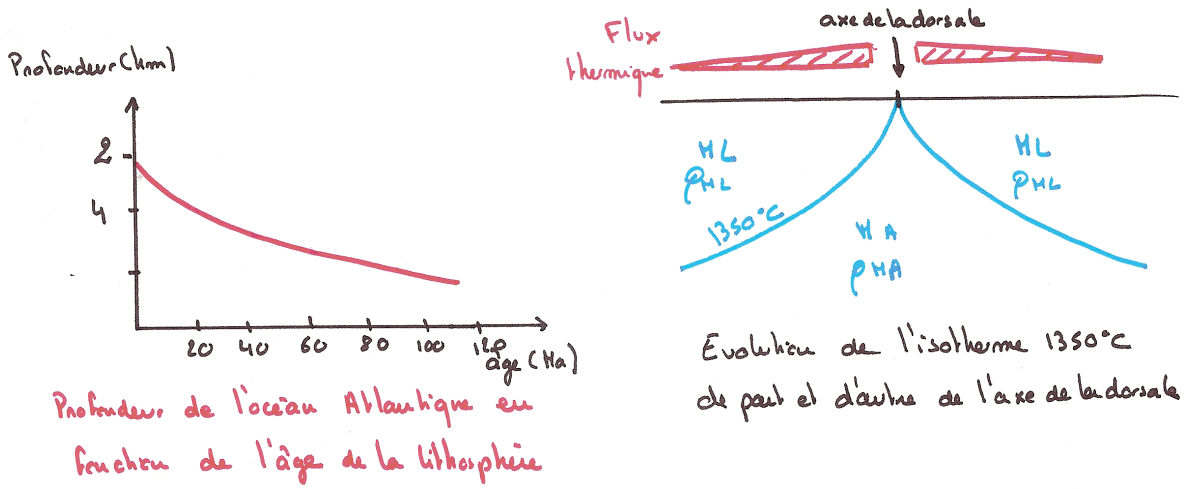 Profondeur (km)
2
4
20 40 60 80 100 120
âge (Ma)
Profondeur de l'océan Atlantique en
fonction de l'âge de la lithosphère
axe de la dorsale
Flux
thermique
ML
ρML
ML
ρML
1350°C
MA
ρMA
Evolution de l'isotherme 1350°C
de part et d'autre de l'axe de la dorsale